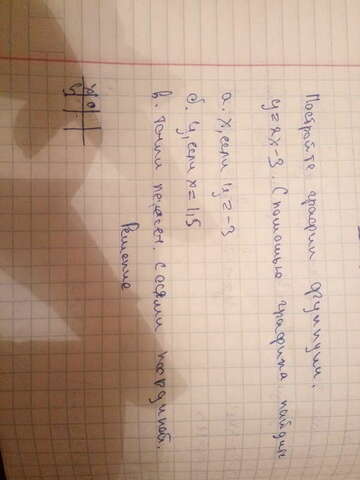 Постройте график функции.
y = 2x - 3. С помощью графика найдите
а. x, если y = -3
б. y, если x = 1,5
в. точки пересеч. с осями координат.
Решение
x 0
y